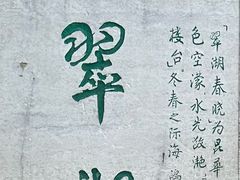 翠湖
「翠湖春晓」为昆华
色空濛水光潋滟
楼台」冬春之际海鸥